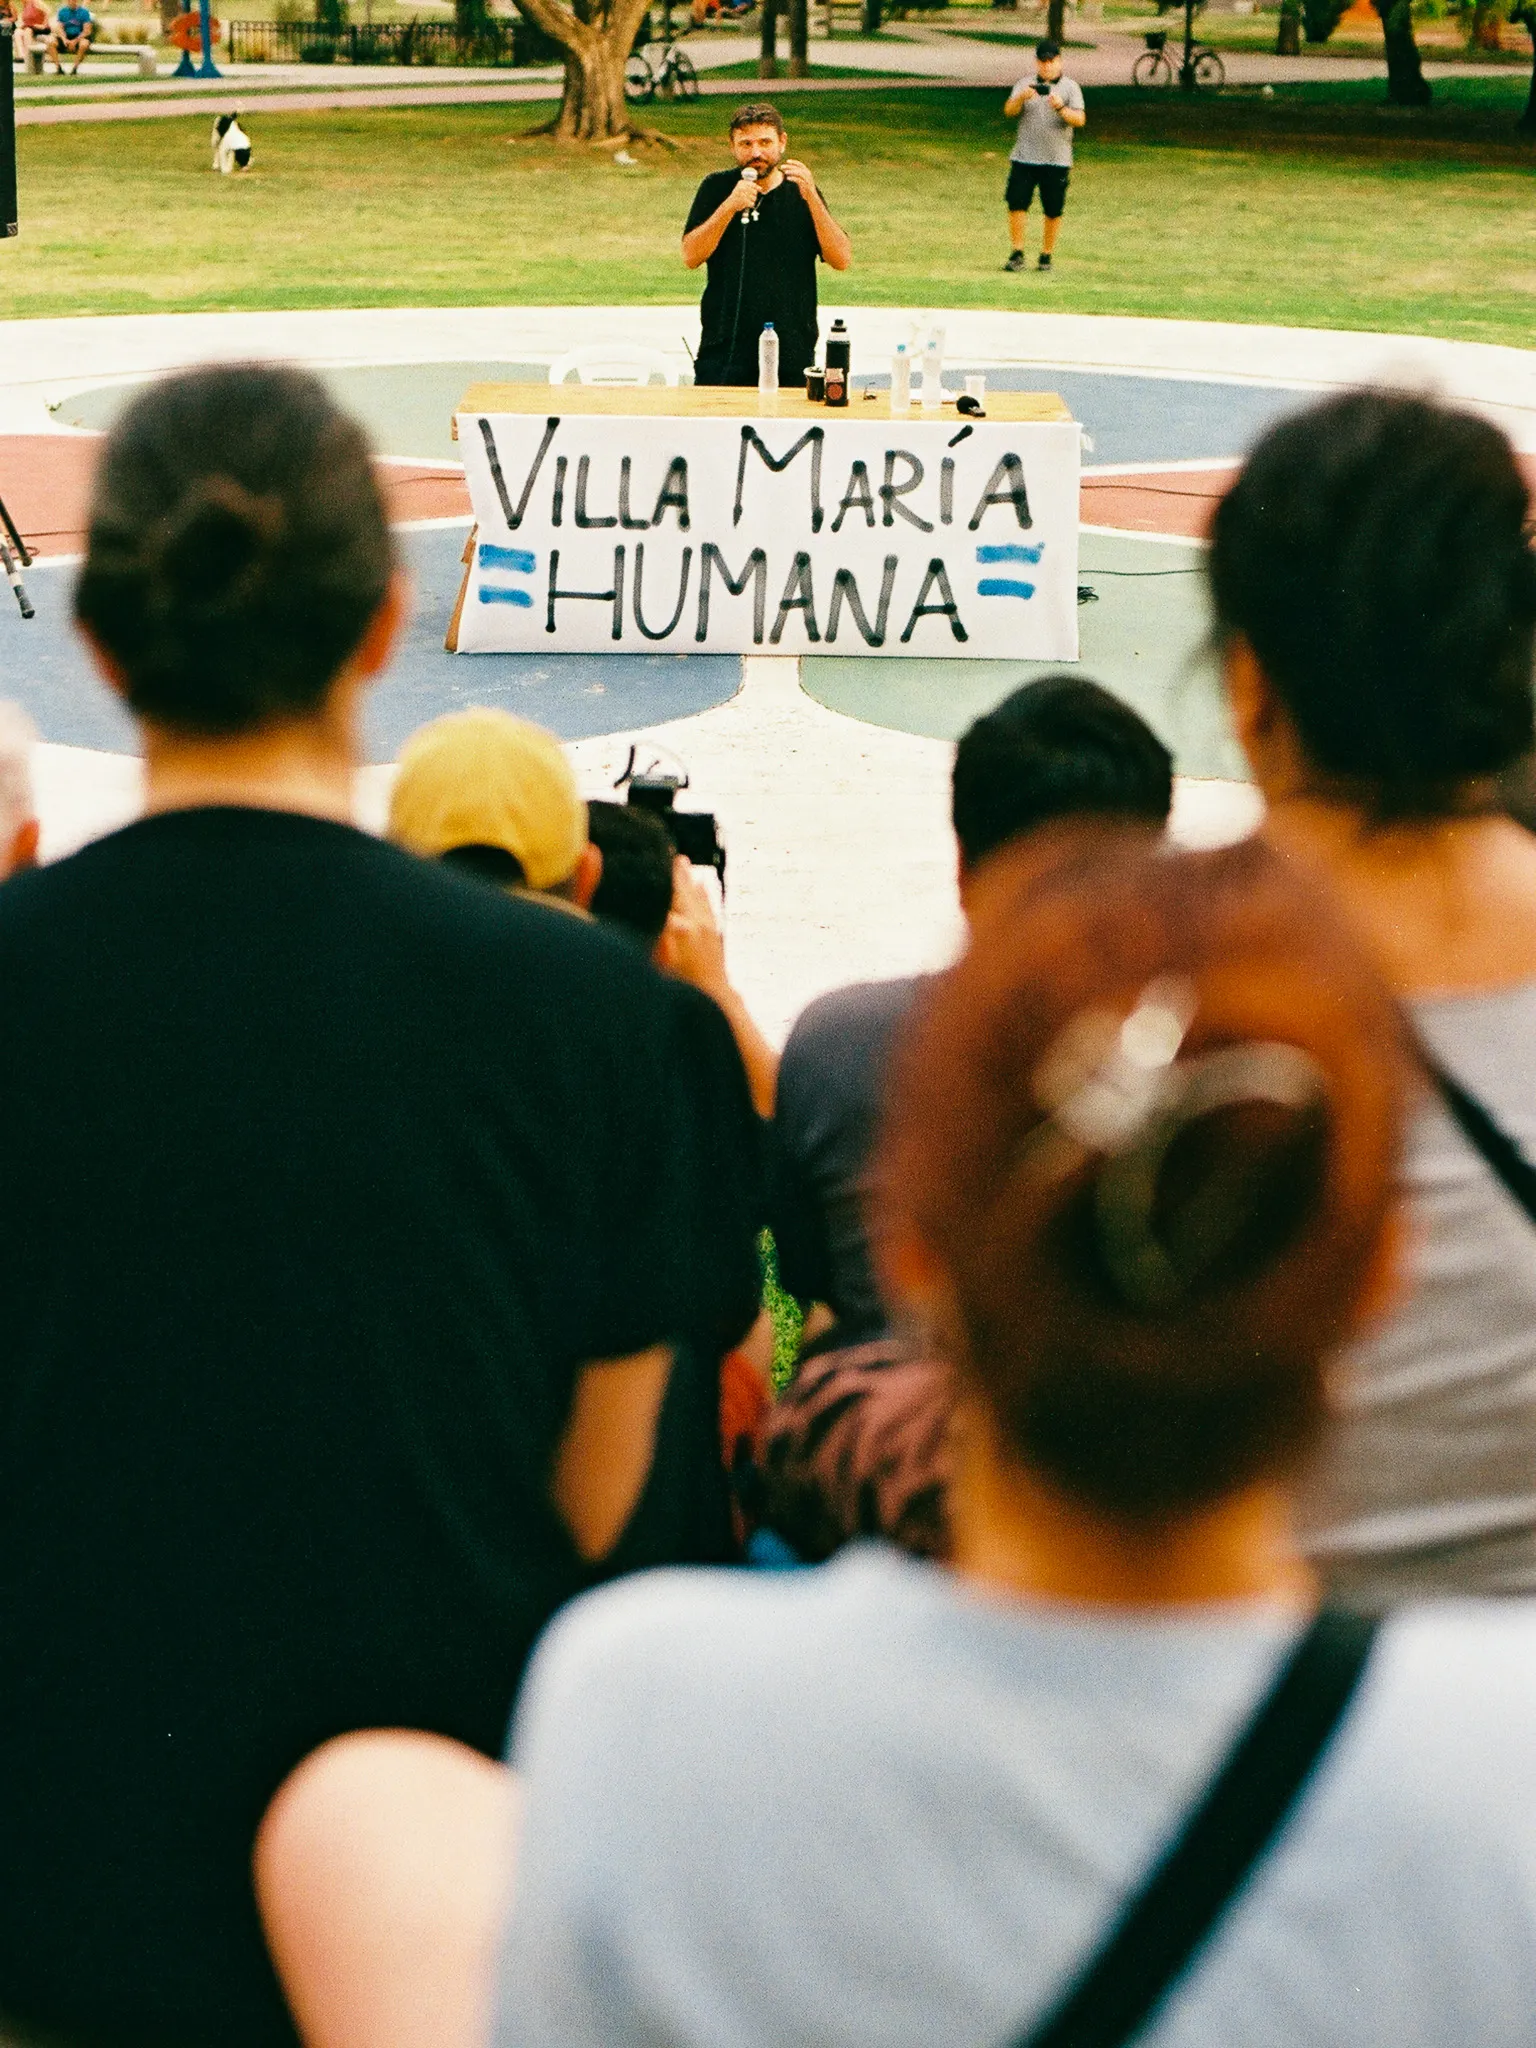 VILLA MARÍA
HUMANA